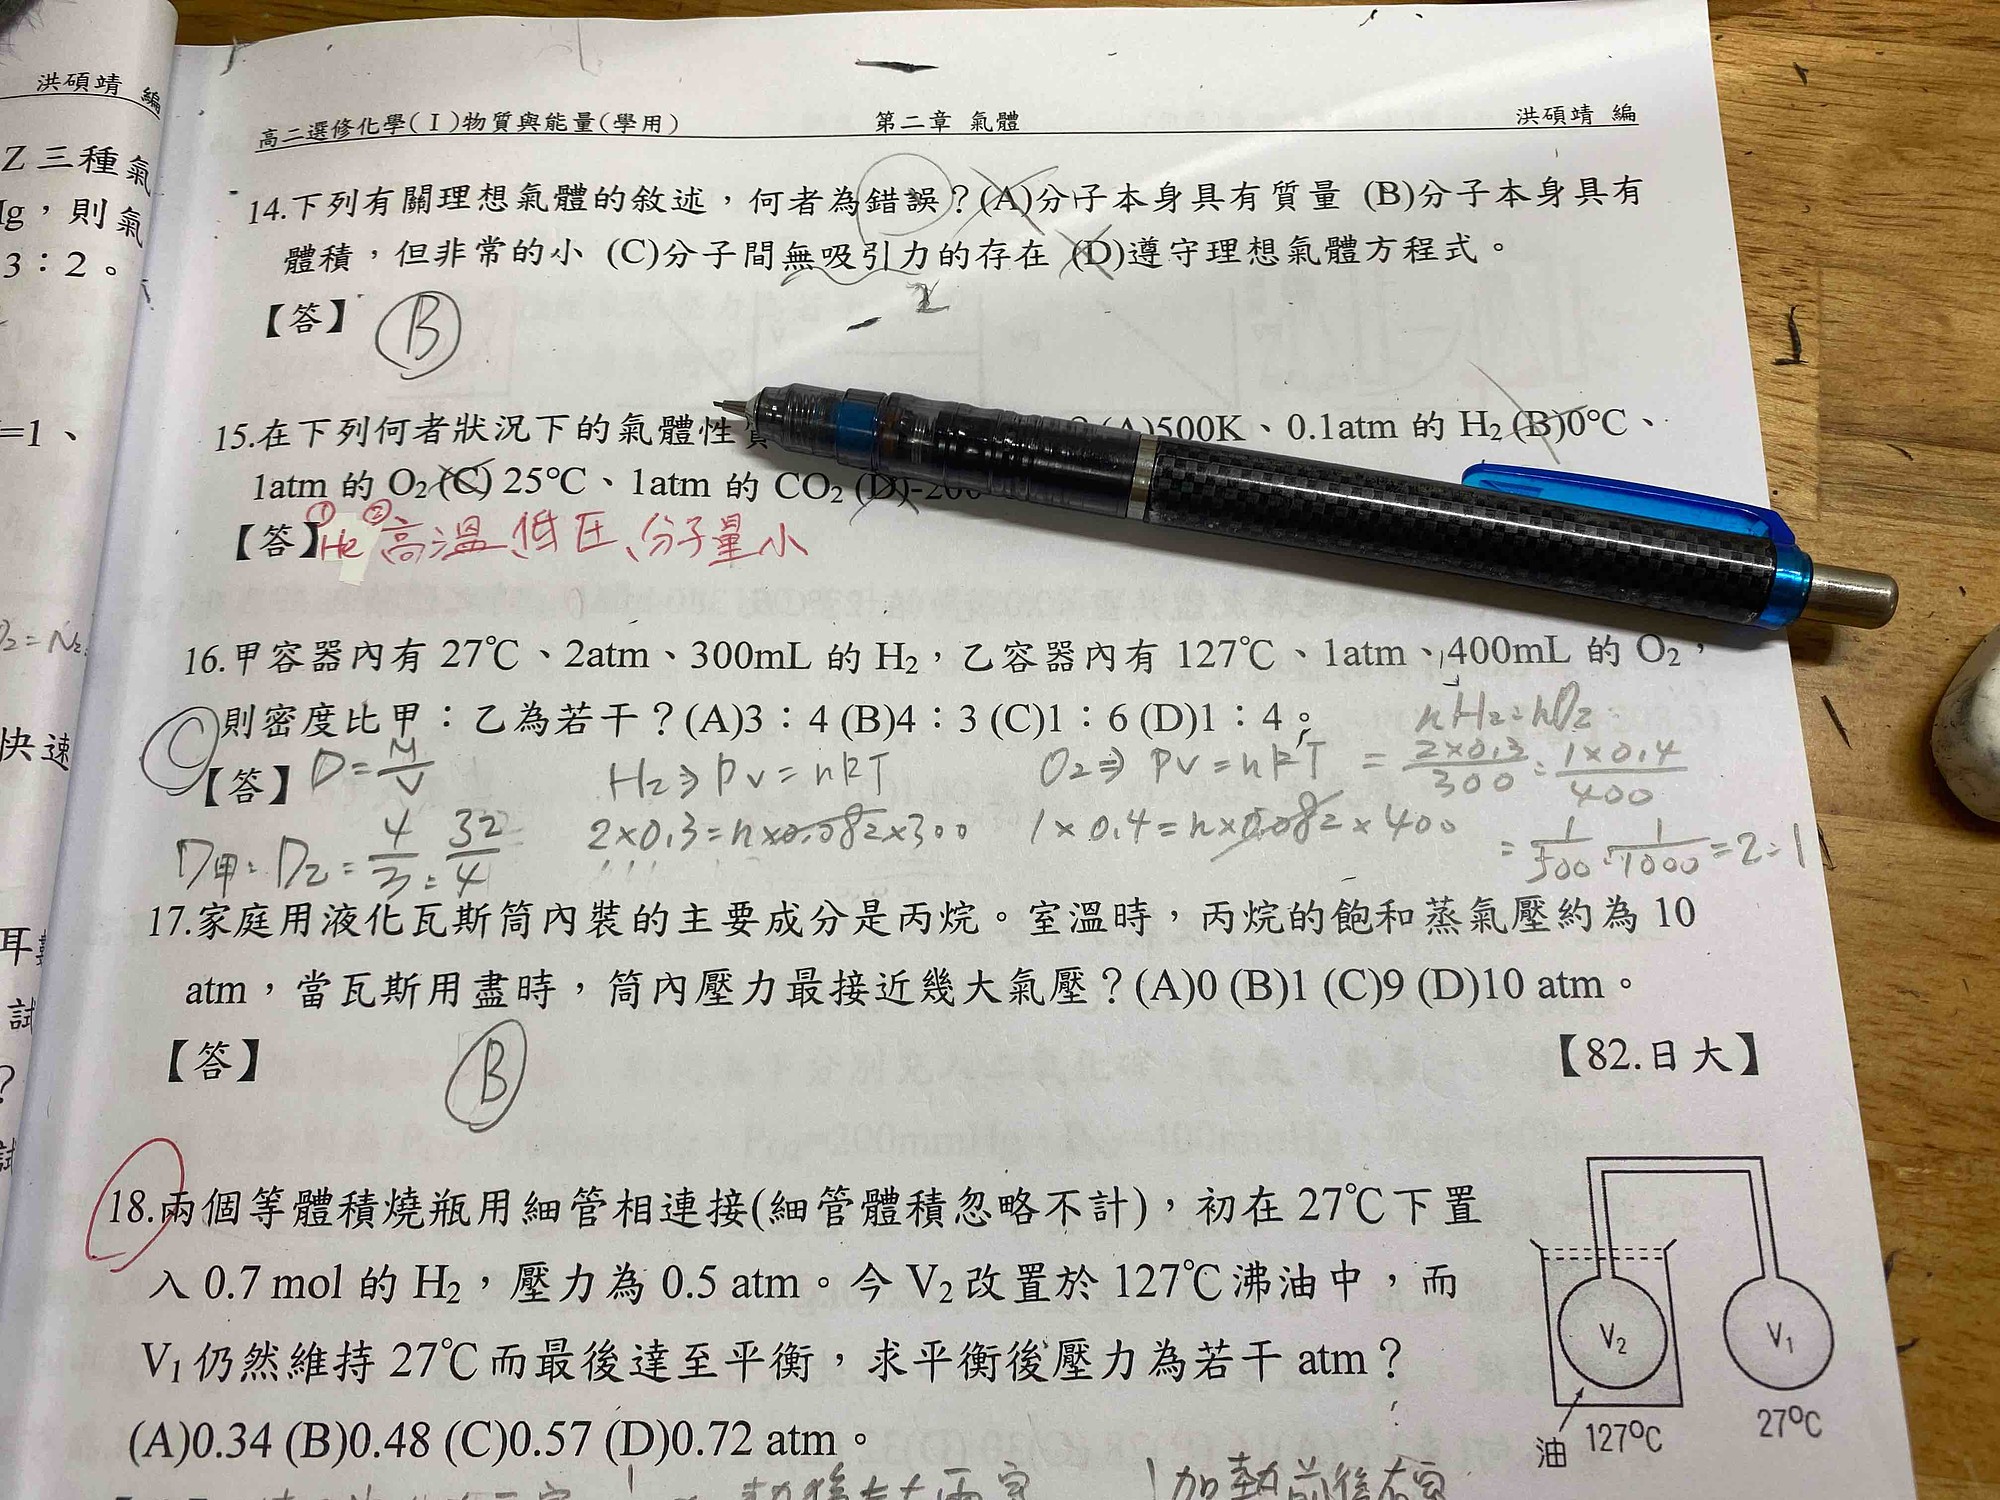 洪碩靖 編
Z三種氣
Ig,則氣
3:2。
=1、
快速
試
?
試
高二選修化學(I)物質與能量(學用) 第二章 氣體 洪碩靖 編
14.下列有關理想氣體的敘述,何者為錯誤?(A)分子本身具有質量 (B)分子本身具有
體積,但非常的小 (C)分子間無吸引力的存在 (D)遵守理想氣體方程式。
【答】 B
15.在下列何者狀況下的氣體性質 ?(A)500K、0.1atm 的 H₂ (B)0℃、
1atm 的 O₂ (C) 25℃、1atm 的 CO₂ (D)-200
【答】 ①He ②高溫、低压、分子量小
16.甲容器內有 27℃、2atm、300mL 的 H₂,乙容器內有 127℃、1atm、400mL 的 O₂,
則密度比甲:乙為若干?(A)3:4 (B)4:3 (C)1:6 (D)1:4。
C
nH₂:nO₂
【答】 D=M/V H₂⇒PV=nRT O₂⇒PV=nRT = 2×0.3/300 : 1×0.4/400
D甲:D乙=4/3:32/4 2×0.3=n×0.082×300 1×0.4=n×0.082×400 = 1/500:1/1000=2:1
17.家庭用液化瓦斯筒內裝的主要成分是丙烷。室溫時,丙烷的飽和蒸氣壓約為 10
atm,當瓦斯用盡時,筒內壓力最接近幾大氣壓?(A)0 (B)1 (C)9 (D)10 atm。
【答】 B 【82.日大】
18.兩個等體積燒瓶用細管相連接(細管體積忽略不計),初在 27℃下置
入 0.7 mol 的 H₂,壓力為 0.5 atm。今 V₂改置於 127℃沸油中,而
V₁仍然維持 27℃而最後達至平衡,求平衡後壓力為若干 atm?
(A)0.34 (B)0.48 (C)0.57 (D)0.72 atm。
V₂ V₁
油 127℃ 27℃